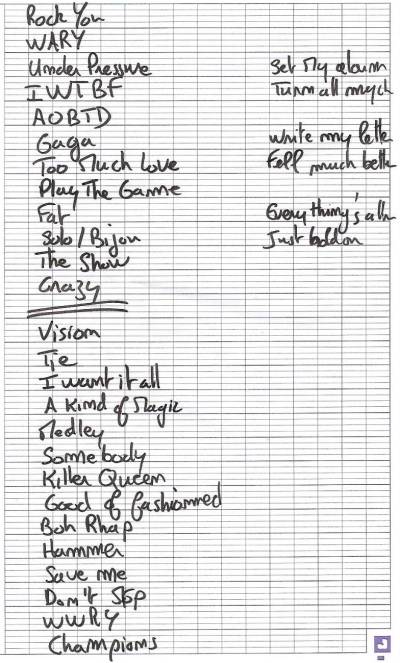 Rock You
WARY
Under Pressure
I WTBF
AOBTD
Gaga
Too Much Love
Play The Game
Fat
Solo / Bijou
The Show
Crazy
Vision
Tie
I want it all
A Kind of Magic
Medley
Somebody
Killer Queen
Good of fashionned
Boh Rhap
Hammer
Save me
Don't Stop
WWRY
Champions
Set My alarm
Turn all mych
Write my lette
Fell much bette
Every thing's all
Just hold on